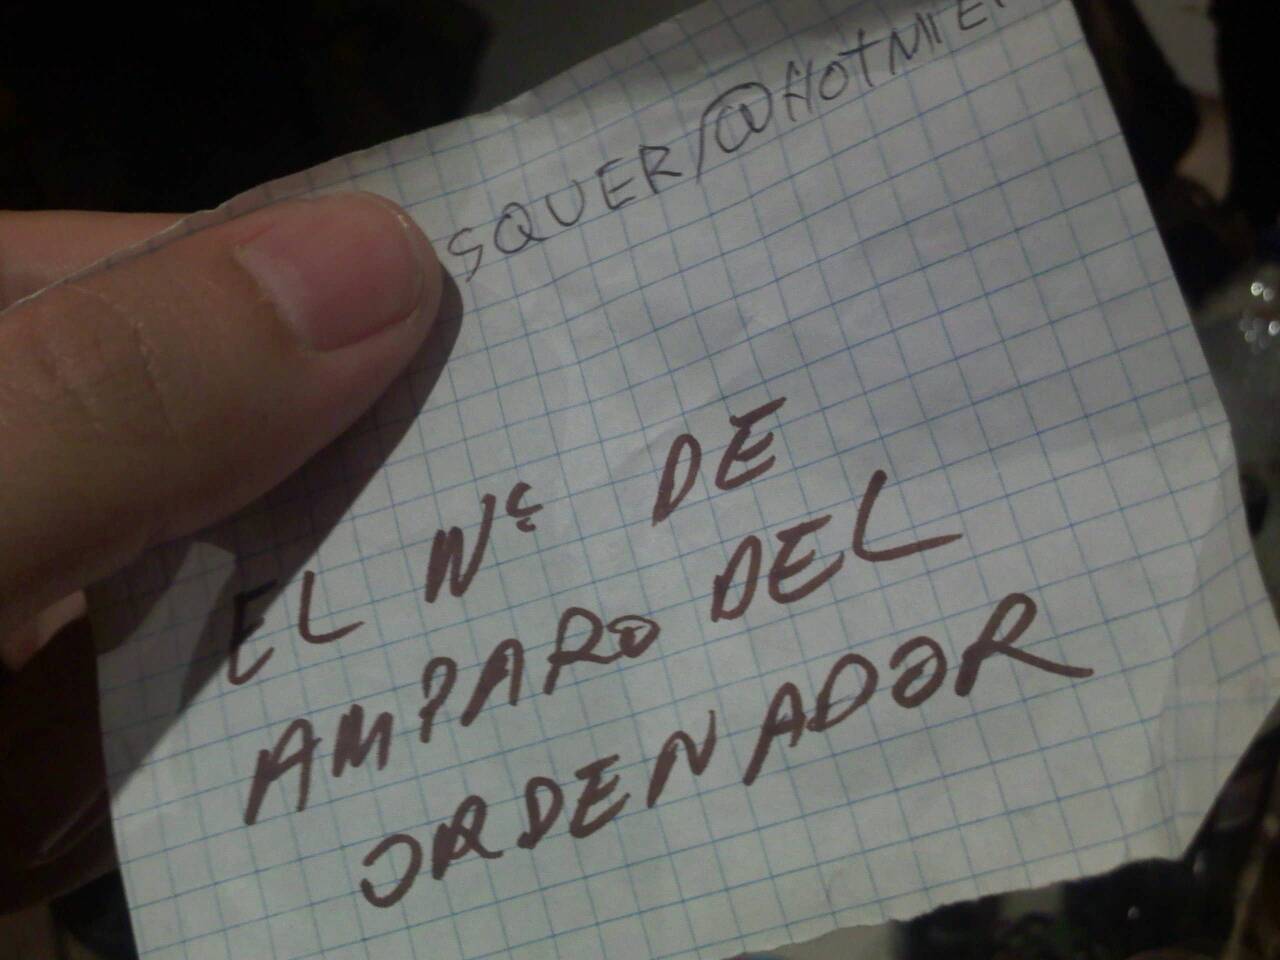 SQUER/@HOTMIEL
EL Nº DE
AMPARO DEL
ORDENADOR